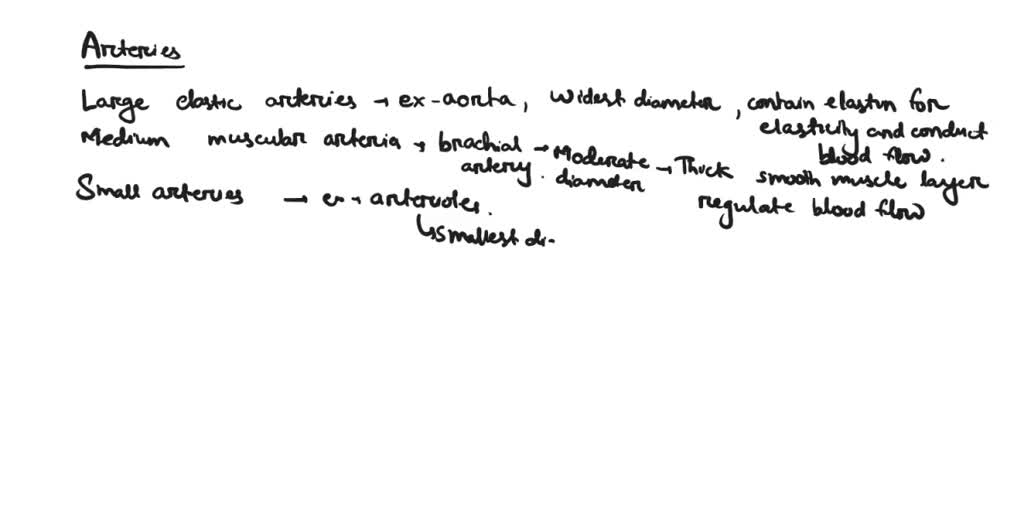 Arteries
Large elastic arteries → ex-aorta, widest diameter, contain elastin for elasticity and conduct blood flow.
Medium muscular arteria → brachial artery. → Moderate diameter → Thick smooth muscle layer regulate blood flow
Small arteries → ex → arterioles.
↳ smallest di-